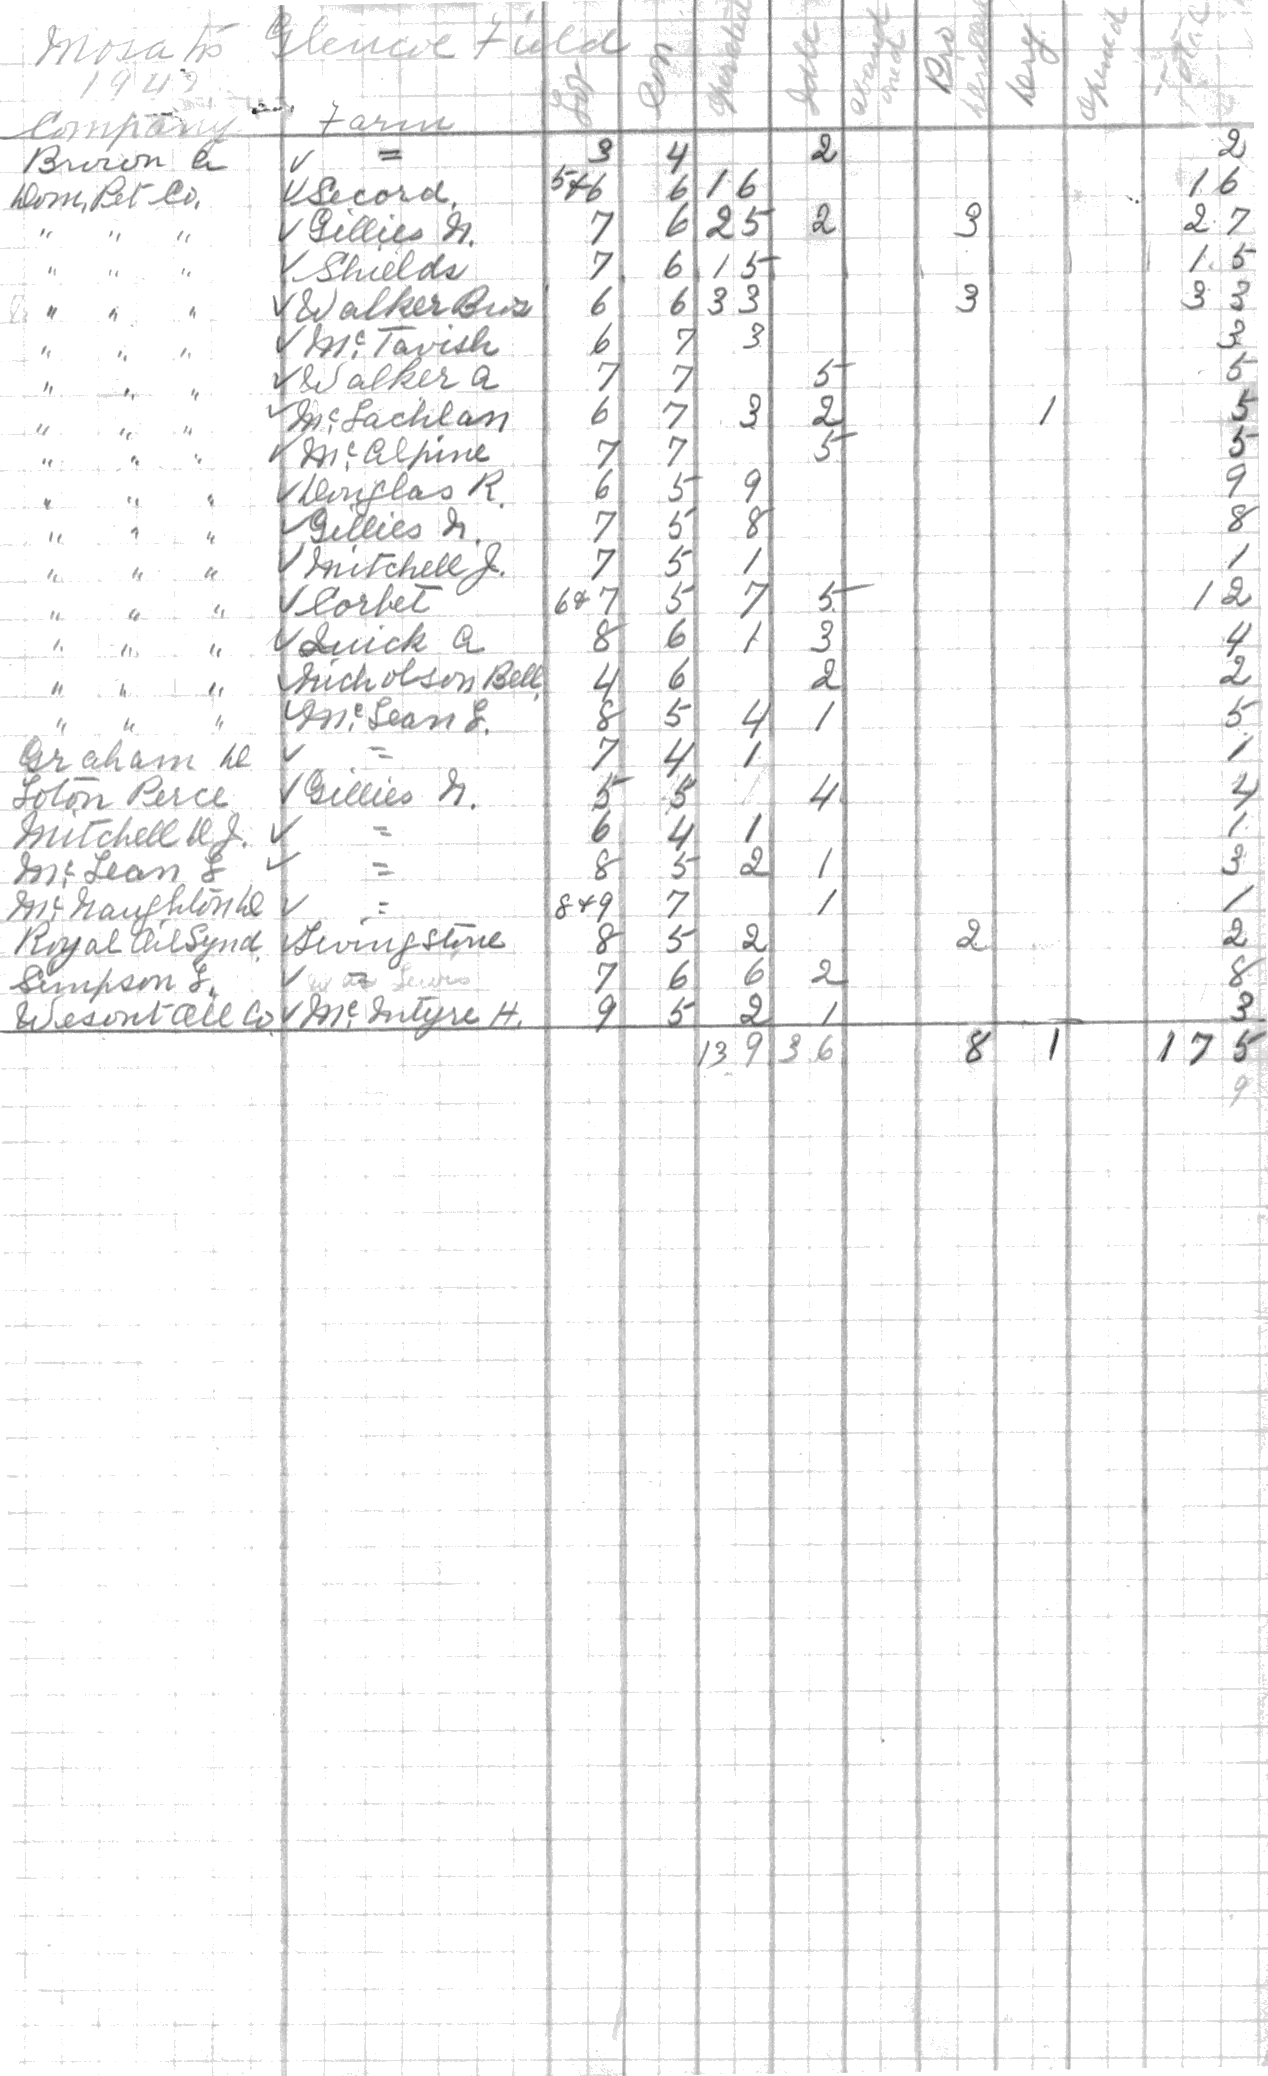 Mosa Tp Glencoe Field
1943
Company Farm Lot Con Operated Idle Aband oned Pro Drilled Dry Opened Total
Brown A ✓ = 3 4 2 2
Dom. Pet Co. ✓ Secord. 5+6 6 16 16
" " " ✓ Gillies N. 7 6 25 2 3 27
" " " ✓ Shields 7 6 15 15
" " " ✓ Walker Bros 6 6 33 3 33
" " " ✓ Mc Tavish 6 7 3 3
" " " ✓ Walker A 7 7 5 5
" " " ✓ Mc Lachlan 6 7 3 2 1 5
" " " ✓ Mc Alpine 7 7 5 5
" " " ✓ Douglas R. 6 5 9 9
" " " ✓ Gillies N. 7 5 8 8
" " " ✓ Mitchell J. 7 5 1 1
" " " ✓ Corbet 6+7 5 7 5 12
" " " ✓ Quick A 8 6 1 3 4
" " " ✓ Nicholson Bell 4 6 2 2
" " " ✓ Mc Lean L. 8 5 4 1 5
Graham D ✓ = 7 4 1 1
Loton Perce ✓ Gillies N. 5 5 4 4
Mitchell D.J. ✓ = 6 4 1 1
Mc Lean L ✓ = 8 5 2 1 3
Mc Naughton D ✓ = 8+9 7 1 1
Royal Oil Synd. ✓ Livingstone 8 5 2 2 2
Simpson L. ✓ = 7 6 6 2 8
Wesont Oil Co ✓ Mc Intyre H. 9 5 2 1 3
139 36 8 1 175
9